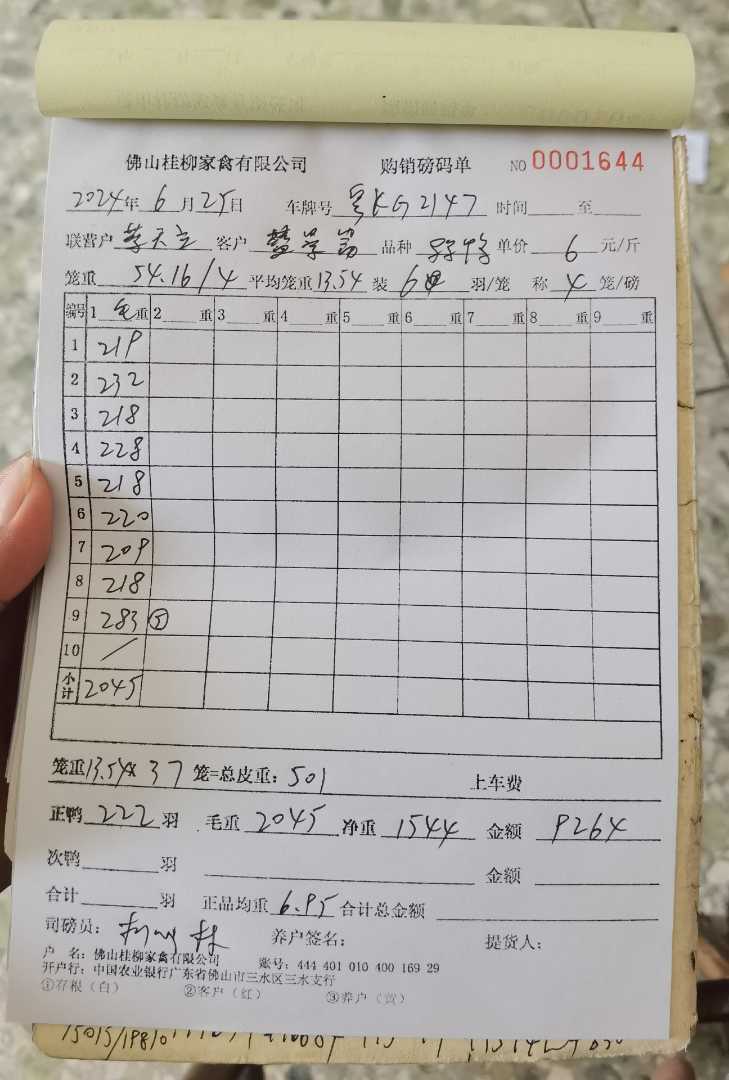 佛山桂柳家禽有限公司 购销磅码单 NO 0001644
2024年 6 月 25 日 车牌号 粤KG2147 时间 至
联营户 李天 客户 品种 单价 6 元/斤
笼重 54.16/4 平均笼重 13.54 装 6 羽/笼 称 4 笼/磅
编号 1 毛 重 2 重 3 重 4 重 5 重 6 重 7 重 8 重 9 重
1 219
2 232
3 218
4 228
5 218
6 220
7 209
8 218
9 283 ⑤
10 /
小计 2045
笼重 13.54x 37 笼=总皮重: 501 上车费
正鸭 222 羽 毛重 2045 净重 1544 金额 9264
次鸭 羽 金额
合计 羽 正品均重 6.95 合计总金额
司磅员: 养户签名: 提货人:
户 名: 佛山桂柳家禽有限公司 账号: 444 401 010 400 169 29
开户行: 中国农业银行广东省佛山市三水区三水支行
①存根（白） ②客户（红） ③养户（黄）